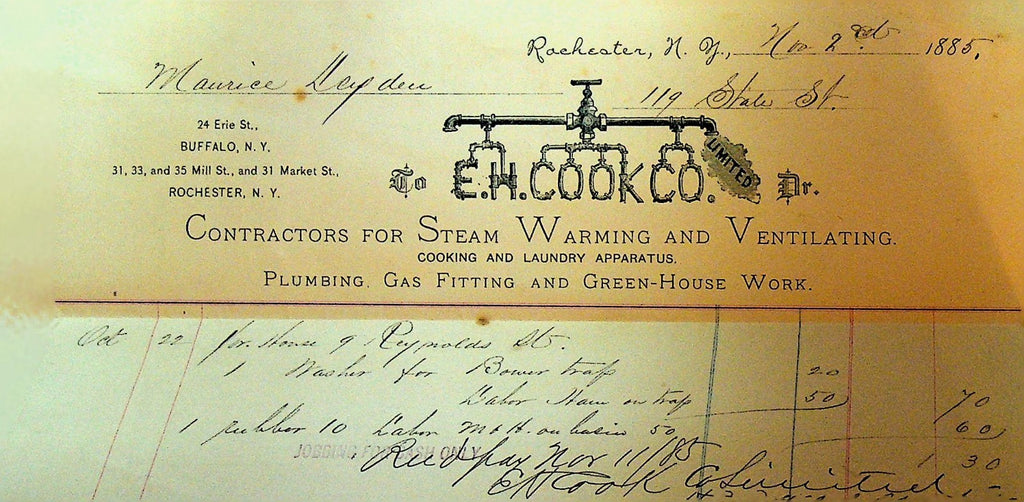 Rochester, N. Y., Nov 2nd 1885.
Maurice Leyden
119 State St.
24 Erie St.,
BUFFALO, N. Y.
31, 33, and 35 Mill St., and 31 Market St.,
ROCHESTER, N. Y.
To E.H. COOK CO. LIMITED Dr.
CONTRACTORS FOR STEAM WARMING AND VENTILATING.
COOKING AND LAUNDRY APPARATUS.
PLUMBING. GAS FITTING AND GREEN-HOUSE WORK.
Oct 22 for House 9 Reynolds St.
1 Washer for Bower trap 20
Labor on trap 50 70
1 rubber 10 Labor on basin 50 60
JOBBING FOR CASH ONLY
Recd pay Nov 11/85 1 30
E H Cook Co Limited